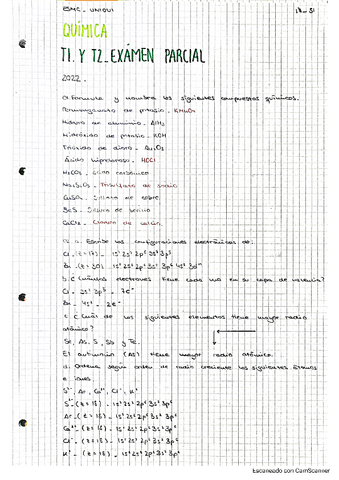 QUÍMICA
T1. Y T2_EXÁMEN PARCIAL
2022.
Formula y nombra los siguientes compuestos químicos.
Permanganato de potasio_ KMnO₄
Hidruro de aluminio_ AlH₃
Hidróxido de potasio_ KOH
Trióxido de dioro_ Au₂O₃
Ácido hipocloroso_ HOCl
H₂CO₃_ ácido carbónico
Na₂S₂O₃_ Tiosulfato de sodio
CuSO₄_ de cobre.
SeS_ Sulfuro de
Cloruro de calcio.
a. Escribe las configuraciones electrónicas de:
Cl (z=17)_ 1s² 2s² 2p⁶ 3s² 3p⁵
Zn (z=30)_ 1s² 2s² 2p⁶ 3s² 3p⁶ 4s² 3d¹⁰
b. ¿Cuántos electrones tiene cada uno en su capa de valencia?
Cl_ 3s² 3p⁵ _ 7e⁻
Zn_ 4s² _ 2e⁻
c. ¿Cuál de los siguientes elementos tiene mayor radio
atómico?
Sr, As, S, Sb y Te.
El (As) tiene mayor radio atómico.
d. Ordena según orden de radio creciente los siguientes átomos
e iones.
S²⁻, Ar, Ca²⁺, Cl⁻, K⁺
S²⁻ (z=18)_ 1s² 2s² 2p⁶ 3s² 3p⁶
Ar_ (z=18)_ 1s² 2s² 2p⁶ 3s² 3p⁶
Ca²⁺ (z=18)_ 1s² 2s² 2p⁶ 3s² 3p⁶
Cl⁻ (z=18)_ 1s² 2s² 2p⁶ 3s² 3p⁶
K⁺ (z=18)_ 1s² 2s² 2p⁶ 3s² 3p⁶
Escaneado con CamScanner